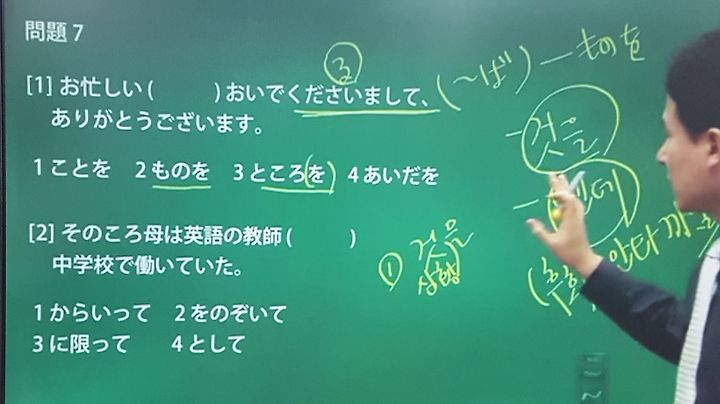 問題 7
[1] お忙しい (　　　) おいでくださいまして、
ありがとうございます。
1 ことを　2 ものを　3 ところを　4 あいだを
[2] そのころ母は英語の教師 (　　　)
中学校で働いていた。
1 からいって　2 をのぞいて
3 に限って　4 として
(~ば) ― ものを
― 것을
― 텐데
① 것을
상황